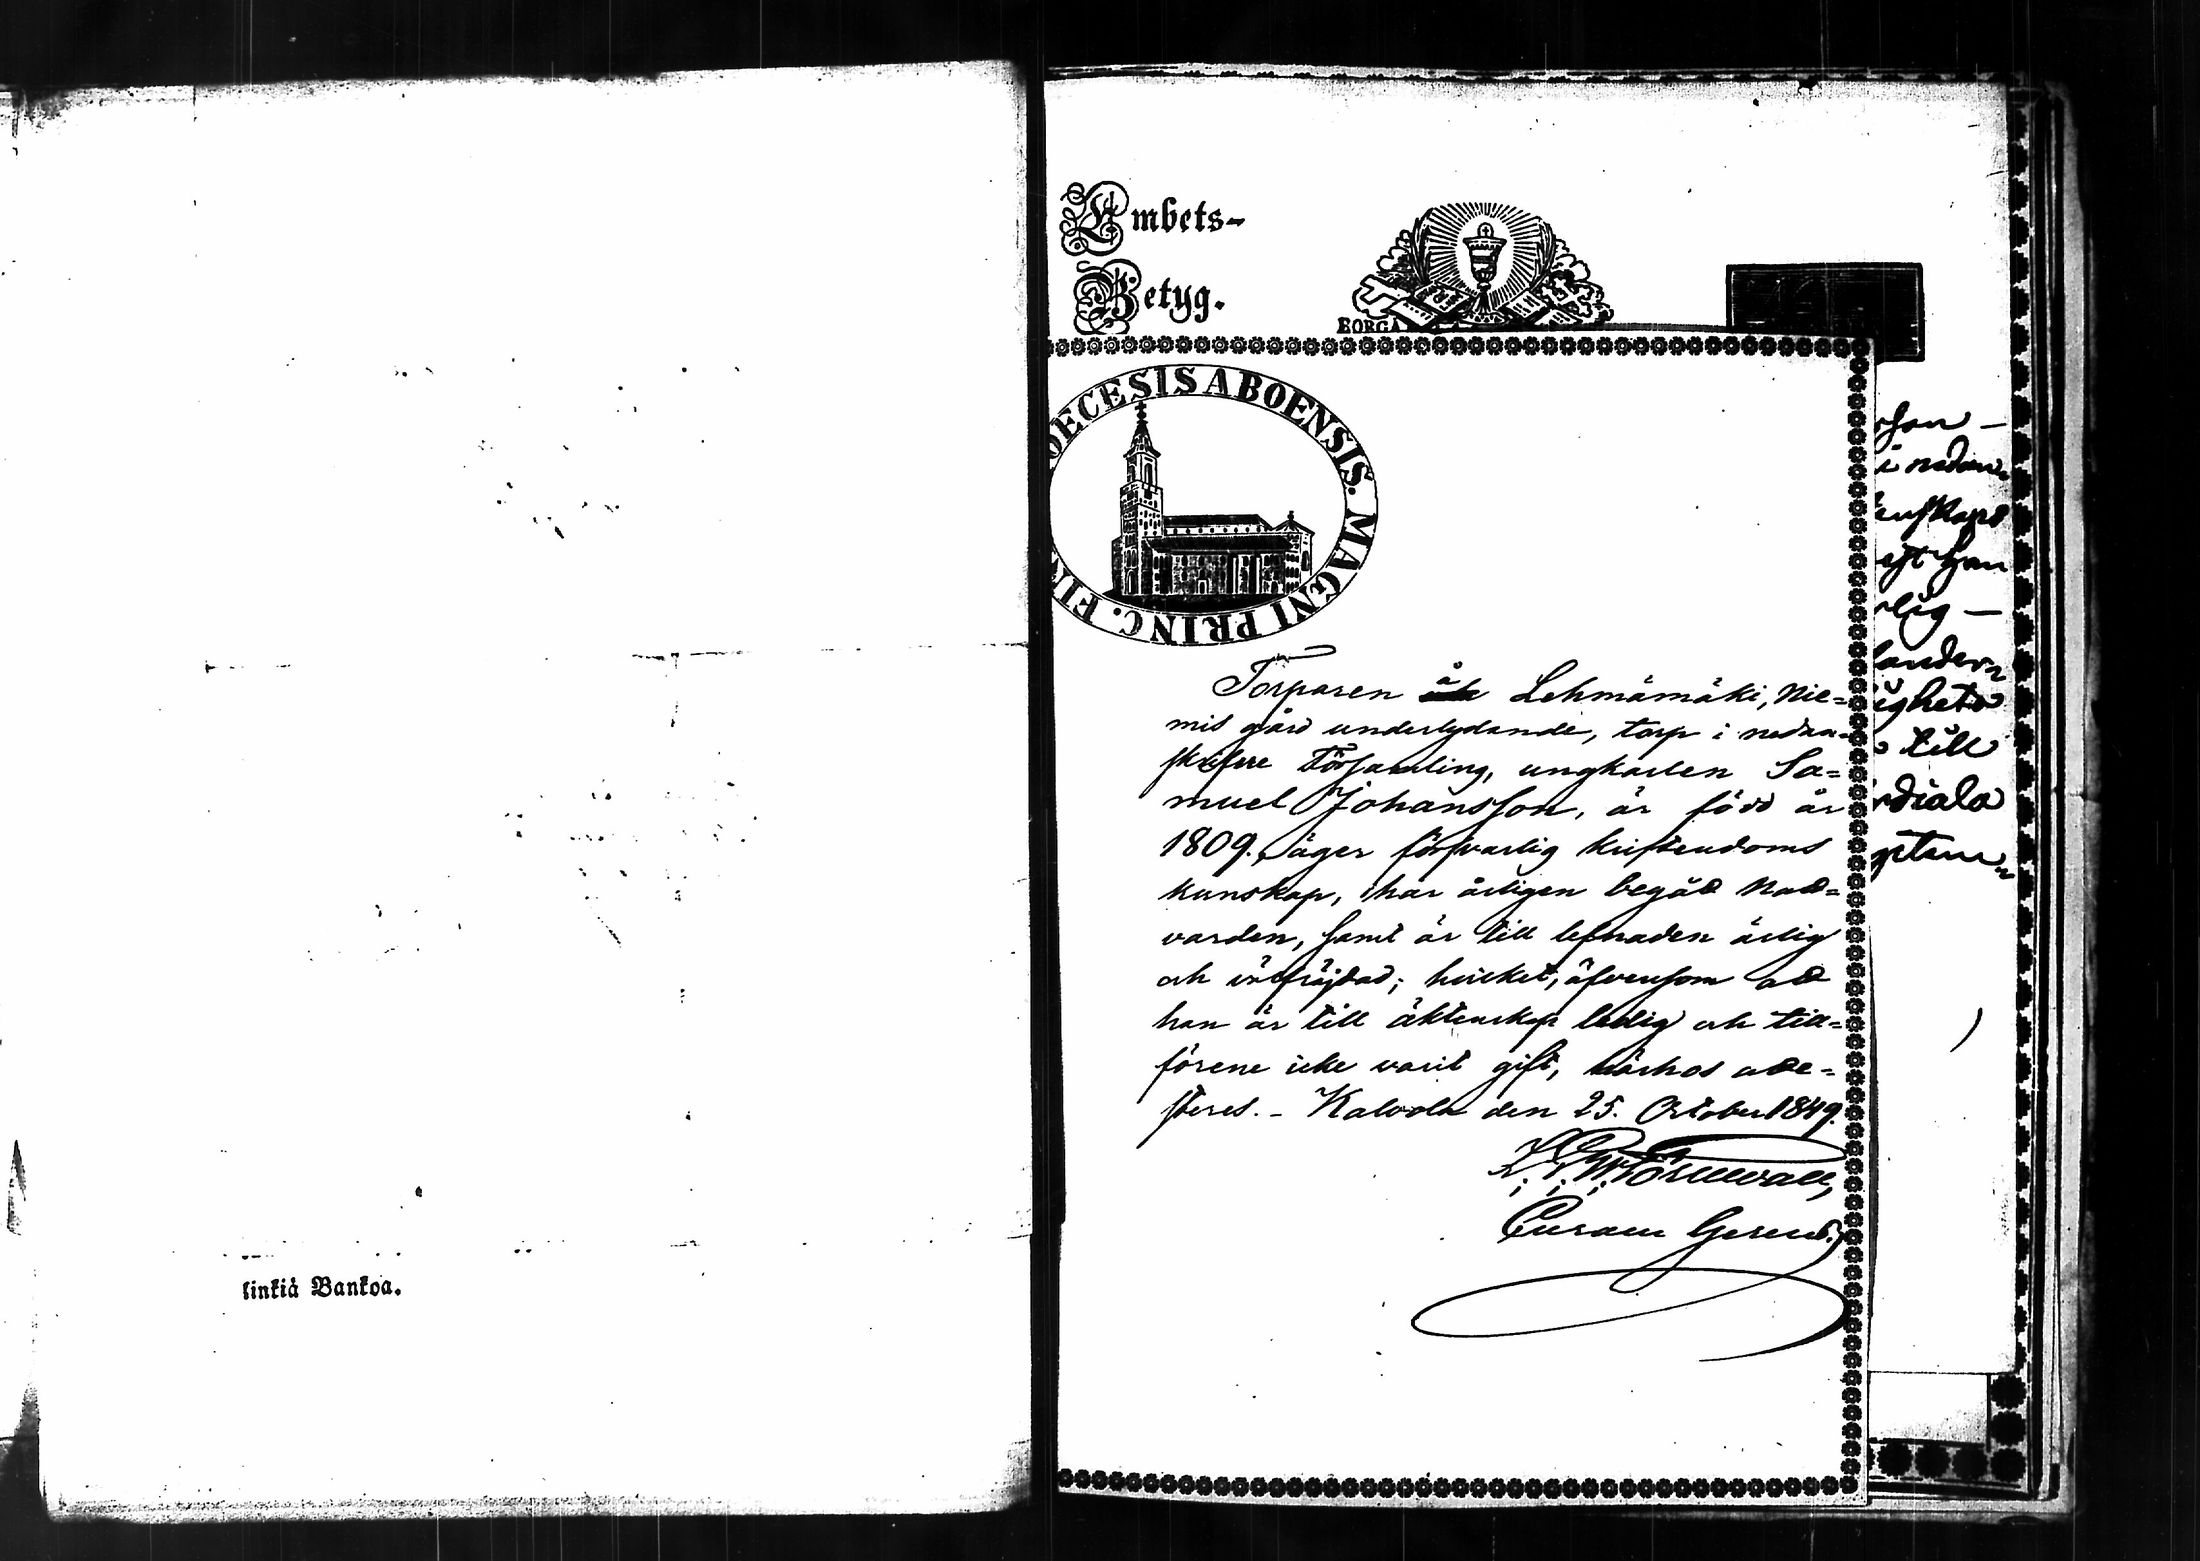 linkiä Bankoa.
Embets-
Betyg.
BORGÅ
DIOECESIS ABOENSIS. MAGNI PRINC. FIN
Torparen å Lehmämäki, Nie=
mis gård underlydande, torp i nedan=
skrefne Församling, ungkarlen Sa=
muel Johansson, är född år
1809., äger försvarlig kristendoms
kunskap, har årligen begått Natt=
varden, samt är till lefnaden ärlig
och välfräjdad; hvilket, äfvensom att
han är till äktenskap ledig och till=
förene icke varit gift, härhos atte=
steres. - Kalvola den 25. October 1849.
Curam Gerens.
rson -
i nedan=
kunskaps
han
rlig -
ighets
till
rdiala